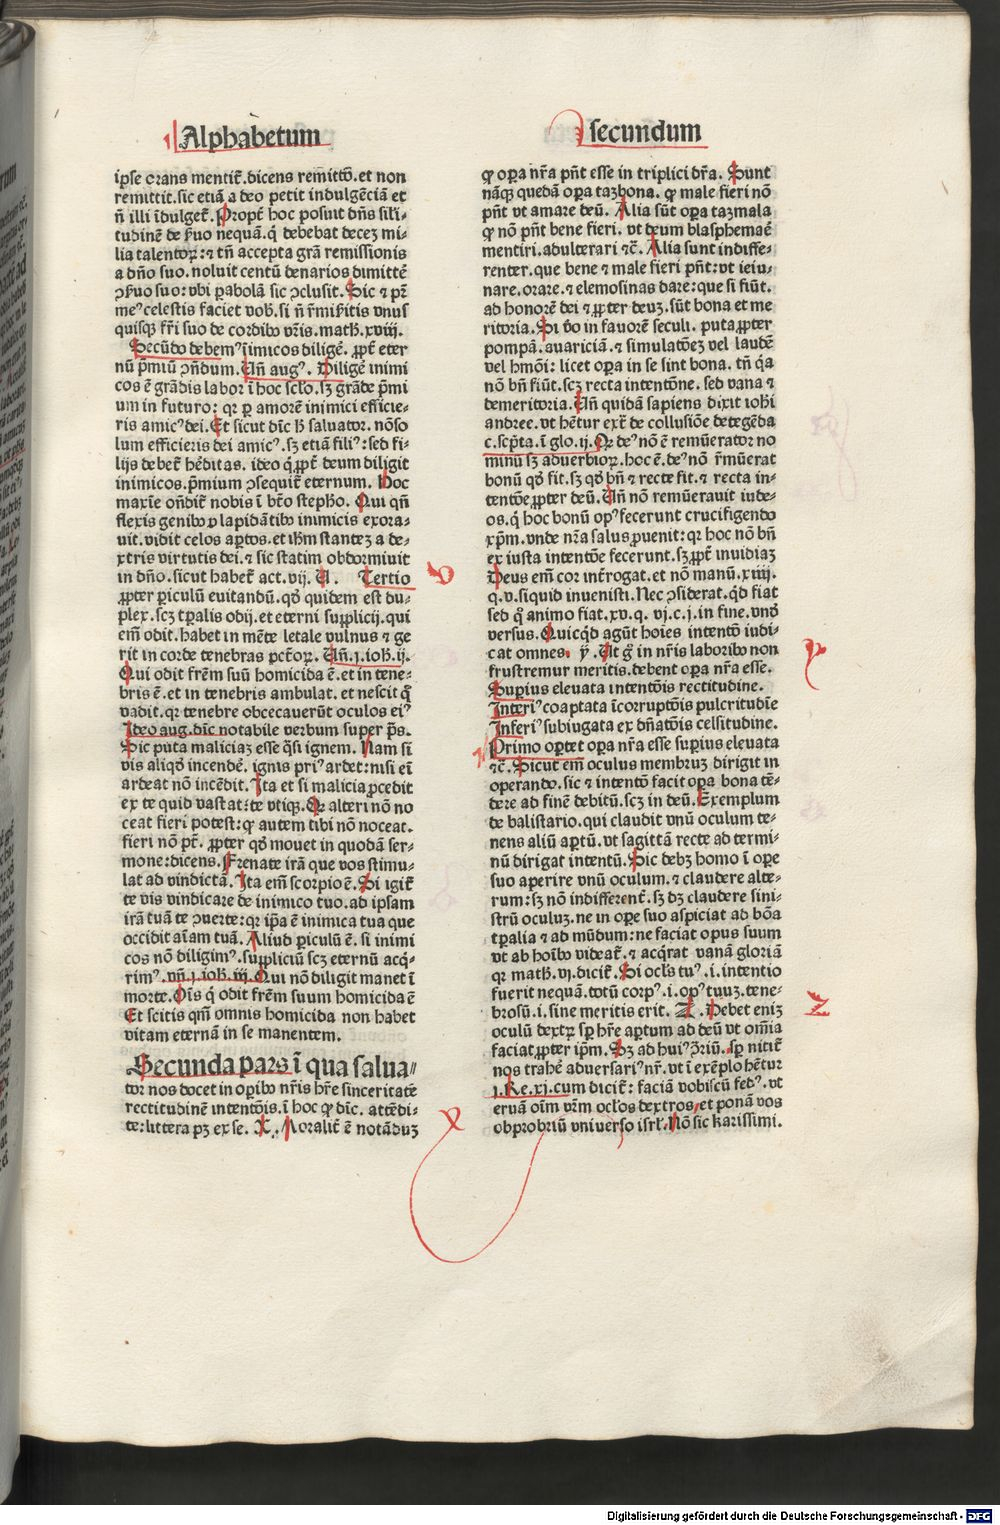 Alphabetum
secundum
ip̄se orans mentit᷑. dicens remitto. et non
remittit. sic etiā a deo petit indulgēciā et
n̄ illi īdulget᷑. Propt̄ hoc posuit dn̄s sil'i-
tudinē de ẜuo nequā. q̄ debebat decez mi-
lia talentoꝝ: ⁊ tn̄ accepta grā remissionis
a dn̄o suo. noluit centū denarios dimitte᷑
ↄẜuo suo: vbi ꝑabolā sic ↄclusit. Sic ⁊ pr̄
meꝰ celestis faciet vob̄. si n̄ r̄mis̄itis vnus
quisqꝫ fr̄i suo de cordibꝰ vr̄is. math̄. xviij.
Secūdo debemꝰ īimicos diligē. ꝓpt̄ eter
nū p̄miū ↄn̄dum. Un̄ augꝰ. Diligē inimi
cos ē grādis labor ī hoc sc̄lo. sꝫ grāde p̄mi
um in futuro: qꝛ ꝑ amorē inimici efficie-
ris amicꝰ dei. Et sicut dīc h̄ saluator. nōso
lum efficieris dei amicꝰ. sꝫ etiā filiꝰ: sed fi-
lijs debet᷑ hēditas. ideo q̄ ꝓpt̄ deum diligit
inimicos. p̄mium ↄsequit᷑ eternum. Hoc
maxīe on̄dit᷑ nobis ī bt̄o stephō. Qui qn̄
flexis genibꝰ ꝓ lapidātibꝰ inimicis exora-
uit. vidit celos aꝑtos. et ih̄m stantez a de-
xtris virtutis dei. ⁊ sic statim obdormiuit
in dn̄o. sicut habet᷑ act. vij. U. Tertio
ꝓpter ꝑiculū euitandū. qd̄ quidem est du-
plex. scꝫ tꝑalis odij. et eterni suꝓplicij. qui
em̄ odit. habet in mēte letale vulnus ⁊ ge
rit in corde tenebras pctōꝝ. Un̄. j. ioh̄. ij.
Qui odit frēm suū homicida ē. et in tene-
bris ē. et in tenebris ambulat. et nescit q̄
vadit. qꝛ tenebre obcecauerūt oculos eiꝰ
Ideo aug. dīc notabile verbum super ps̄.
Sic puta maliciaꝫ esse q̄si ignem. Nam si
vis aliqd̄ incendē. ignis priꝰ ardet: nisi ei̅
ardeat nō incēdit. Ita et si malicia ꝓcedit
ex te quid vastat: te vtiqꝫ. Qꝛ alteri nō no
ceat fieri potest: qꝫ autem tibi nō noceat.
fieri nō pt̄. ꝓpter qd̄ mouet in quodā ser-
mone: dicens. Frenate irā que vos stimu-
lat ad vindictā. Ita em̄ scorpio ē. Si igit᷑
te vis vindicare de inimico tuo. ad ipsam
irā tuā te ↄuerte: qꝛ ip̄a ē inimica tua que
occidit aīam tuā. Aliud ꝑiculū ē. si inimi
cos nō diligimꝰ. suꝓpliciū scꝫ eternū acq̄-
rimꝰ. vn̄. j. ioh̄. iij. Qui nō diligit manet ī
morte. Oīs q̄ odit frēm suum homicida ē
Et scitis qm̄ omnis homicida non habet
vitam eternā in se manentem.
Secunda pars ī qua salua⸗
tor nos docet in oꝑibꝰ nr̄is hr̄e sinceritatē
rectitudinē intentōis. ī hoc qꝫ dīc. attēdi-
te: littera pꝫ ex se. X. Moralit᷑ ē notāduꝫ
qꝫ oꝑa nr̄a pn̄t esse in triplici dr̄a. Sunt
nāqꝫ quedā oꝑa taꝫ bona. qꝫ male fieri nō
pn̄t vt amare deū. Alia sūt oꝑa taꝫ mala
qꝫ nō pn̄t bene fieri. vt deum blasphemare
mentiri. adulterari ⁊c̄. Alia sunt indiffe-
renter. que bene ⁊ male fieri pn̄t: vt ieiu-
nare. orare. ⁊ elemosinas dare: que si fiūt.
ad honorē dei ⁊ ꝓpter deuꝫ. sūt bona et me
ritoria. Si v̄o in fauorē seculi. puta ꝓpter
pompā. auariciā. ⁊ simulatōeꝫ vel laudē
vel hmōi: licet oꝑa in se sint bona. tn̄ q̄a
nō bn̄ fiūt. scꝫ recta intentōne. sed vana ⁊
demeritoria. Un̄ quidā sapiens dixit ioh̄i
andree. vt hētur extr̄ de collusiōe detegēda
c. scp̄ta. ī glo. ij. Qꝛ deꝰ nō ē remūerator no
minū sꝫ aduerbioꝝ. hoc ē. deꝰ nō r̄mūerat
bonū qd̄ fit. sꝫ qd̄ bn̄ ⁊ recte fit. ⁊ recta in-
tentōe ꝓpter deū. Un̄ nō remūerauit iude-
os. q̄ hoc bonū opꝰ fecerunt crucifigendo
xp̄m. vnde nr̄a salus ꝓuenit: qꝛ hoc nō bn̄
ex iusta intentōe fecerunt. sꝫ ꝓpt̄ inuidiaꝫ
Deus em̄ cor int̄rogat. et nō manū. xiiij.
q. v. siquid inuenisti. Nec ↄsiderat. qd̄ fiat
sed q̄ animo fiat. xv. q. vj. c. j. in fine. vnd̄
versus. Quicqd̄ agūt hoīes intentō iudi-
cat omnes. y. Ut gͦ in nr̄is laboribꝰ non
frustremur meritis. debent oꝑa nr̄a esse.
Suꝑius eleuata intentōis rectitudine.
Interiꝰ coaptata īcorruptōis pulcritudīe
Inferiꝰ subiugata ex dn̄atōis celsitudine.
Primo oꝑtet oꝑa nr̄a esse suꝑius eleuata
⁊c̄. Sicut em̄ oculus membruꝫ dirigit in
operando. sic ⁊ intentō facit oꝑa bona tē-
dere ad finē debitū. scꝫ in deū. Exemplum
de balistario. qui claudit vnū oculum te-
nens aliū aꝑtū. vt sagittā recte ad termi-
nū dirigat intentū. Sic debꝫ homo ī oꝑe
suo aperire vnū oculum. ⁊ claudere alte-
rum: sꝫ nō indifferent᷑. sꝫ dꝫ claudere sini-
strū oculuꝫ. ne in oꝑe suo aspiciat ad bōa
tꝑalia ⁊ ad mūdum: ne faciat opus suum
vt ab hoībꝰ videat᷑. ⁊ acq̄rat vanā gloriā
qꝛ math̄. vj. dicit᷑. Si ocl'us tuꝰ. i. intentio
fuerit nequā. totū corpꝰ. i. opꝰ tuuꝫ. tene-
brosū. i. sine meritis erit. Z. Debet eniꝫ
oculū dextꝝ sp̄ hr̄e aꝑtum ad deū vt om̄ia
faciat ꝓpter ip̄m. Sꝫ ad huiꝰ ↄ̄riū. sp̄ nitit᷑
nos trahē aduersariꝰ nr̄. vt ī exēplo hētur
j. Re. xj. cum dicit᷑: faciā vobiscū fedꝰ. vt
eruā oīm vr̄m ocl'os dextros, et ponā vos
obprobriū vniuerso isrl̄. Nō sic karissimi.
v
y
Z
X
Digitalisierung gefördert durch die Deutsche Forschungsgemeinschaft - DFG